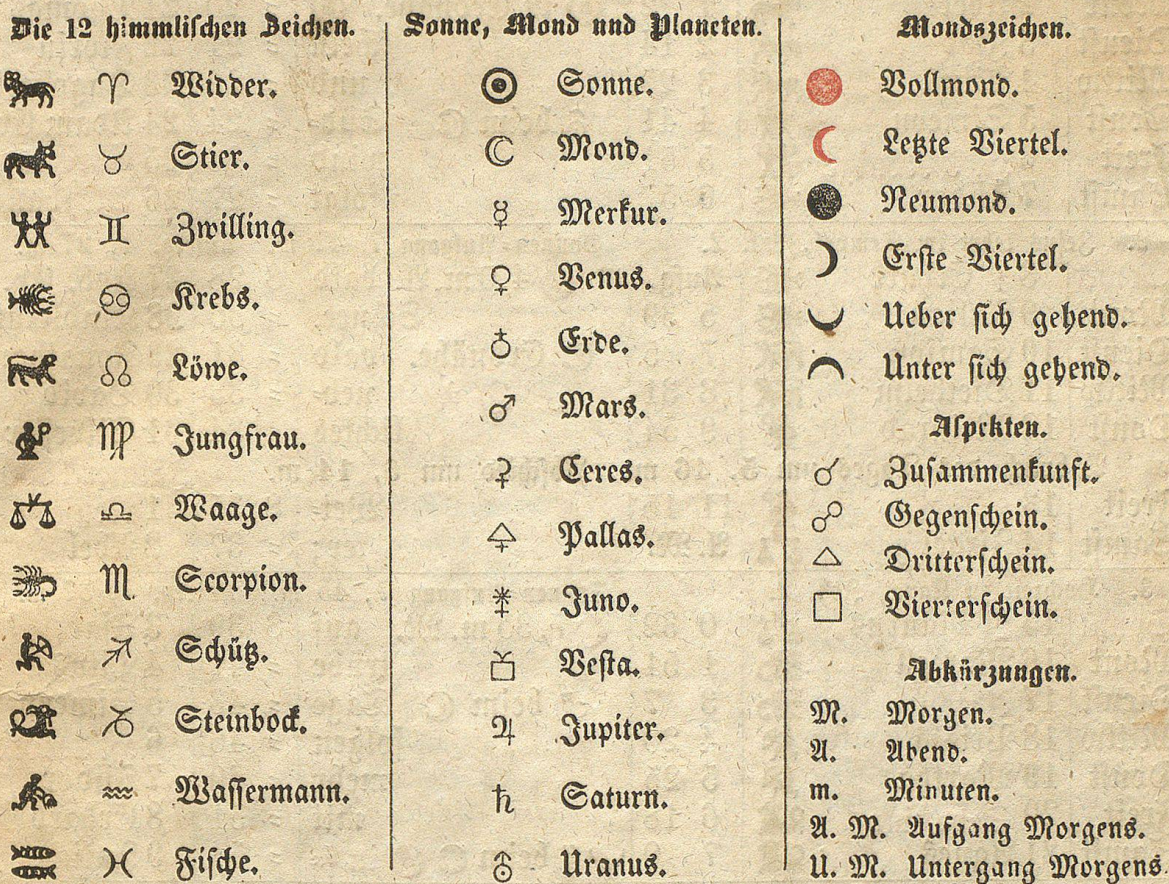 Die 12 himmlischen Zeichen.
♈ Widder.
♉ Stier.
♊ Zwilling.
♋ Krebs.
♌ Löwe.
♍ Jungfrau.
♎ Waage.
♏ Scorpion.
♐ Schütz.
♑ Steinbock.
♒ Wassermann.
♓ Fische.
Sonne, Mond und Planeten.
☉ Sonne.
☾ Mond.
☿ Merkur.
♀ Venus.
♁ Erde.
♂ Mars.
⚳ Ceres.
⚴ Pallas.
⚵ Juno.
⚶ Vesta.
♃ Jupiter.
♄ Saturn.
⛢ Uranus.
Mondszeichen.
Vollmond.
Letzte Viertel.
Neumond.
Erste Viertel.
Ueber sich gehend.
Unter sich gehend.
Aspekten.
☌ Zusammenkunft.
☍ Gegenschein.
△ Dritterschein.
□ Vierterschein.
Abkürzungen.
M. Morgen.
A. Abend.
m. Minuten.
A. M. Aufgang Morgens.
U. M. Untergang Morgens.